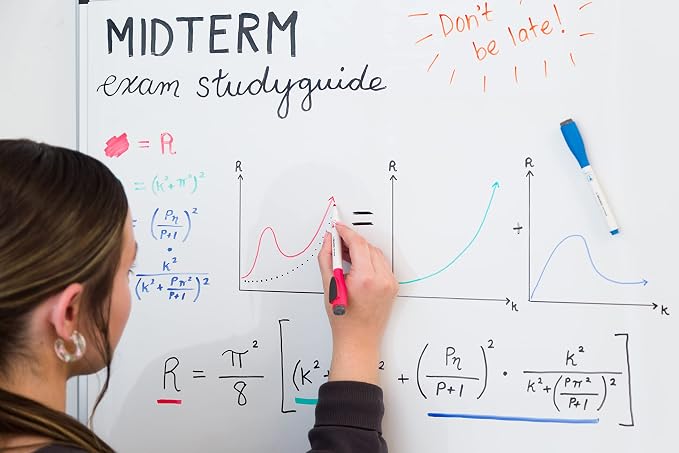 MIDTERM
exam studyguide
Don't
be late!
= R
= (K² + π²)²
= (Pη / P+1)²
·
K² / (K² + Pπ² / P+1)²
R
K
=
R
K
+
R
K
R = π² / 8 [ (K² + (Pη / P+1)² · K² / K² + (Pπ² / P+1)² ]